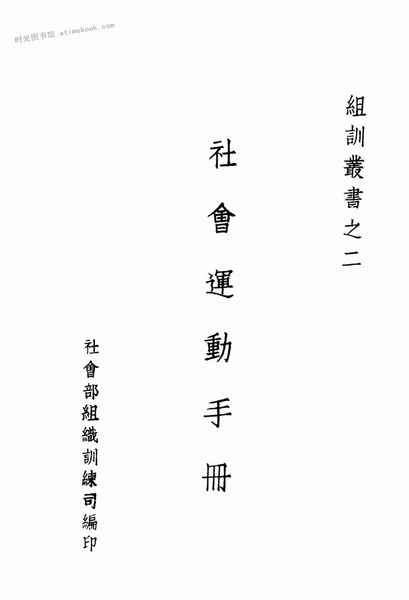 时光图书馆 atimebook.com
組訓叢書之二
社會運動手冊
社會部組織訓練司編印